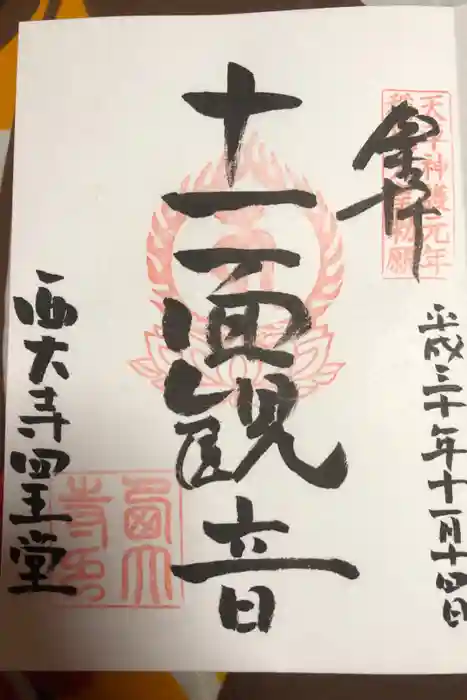 奉拝
天平神護元年
平成三十年十一月十四日
十一面観音
西大寺四王堂